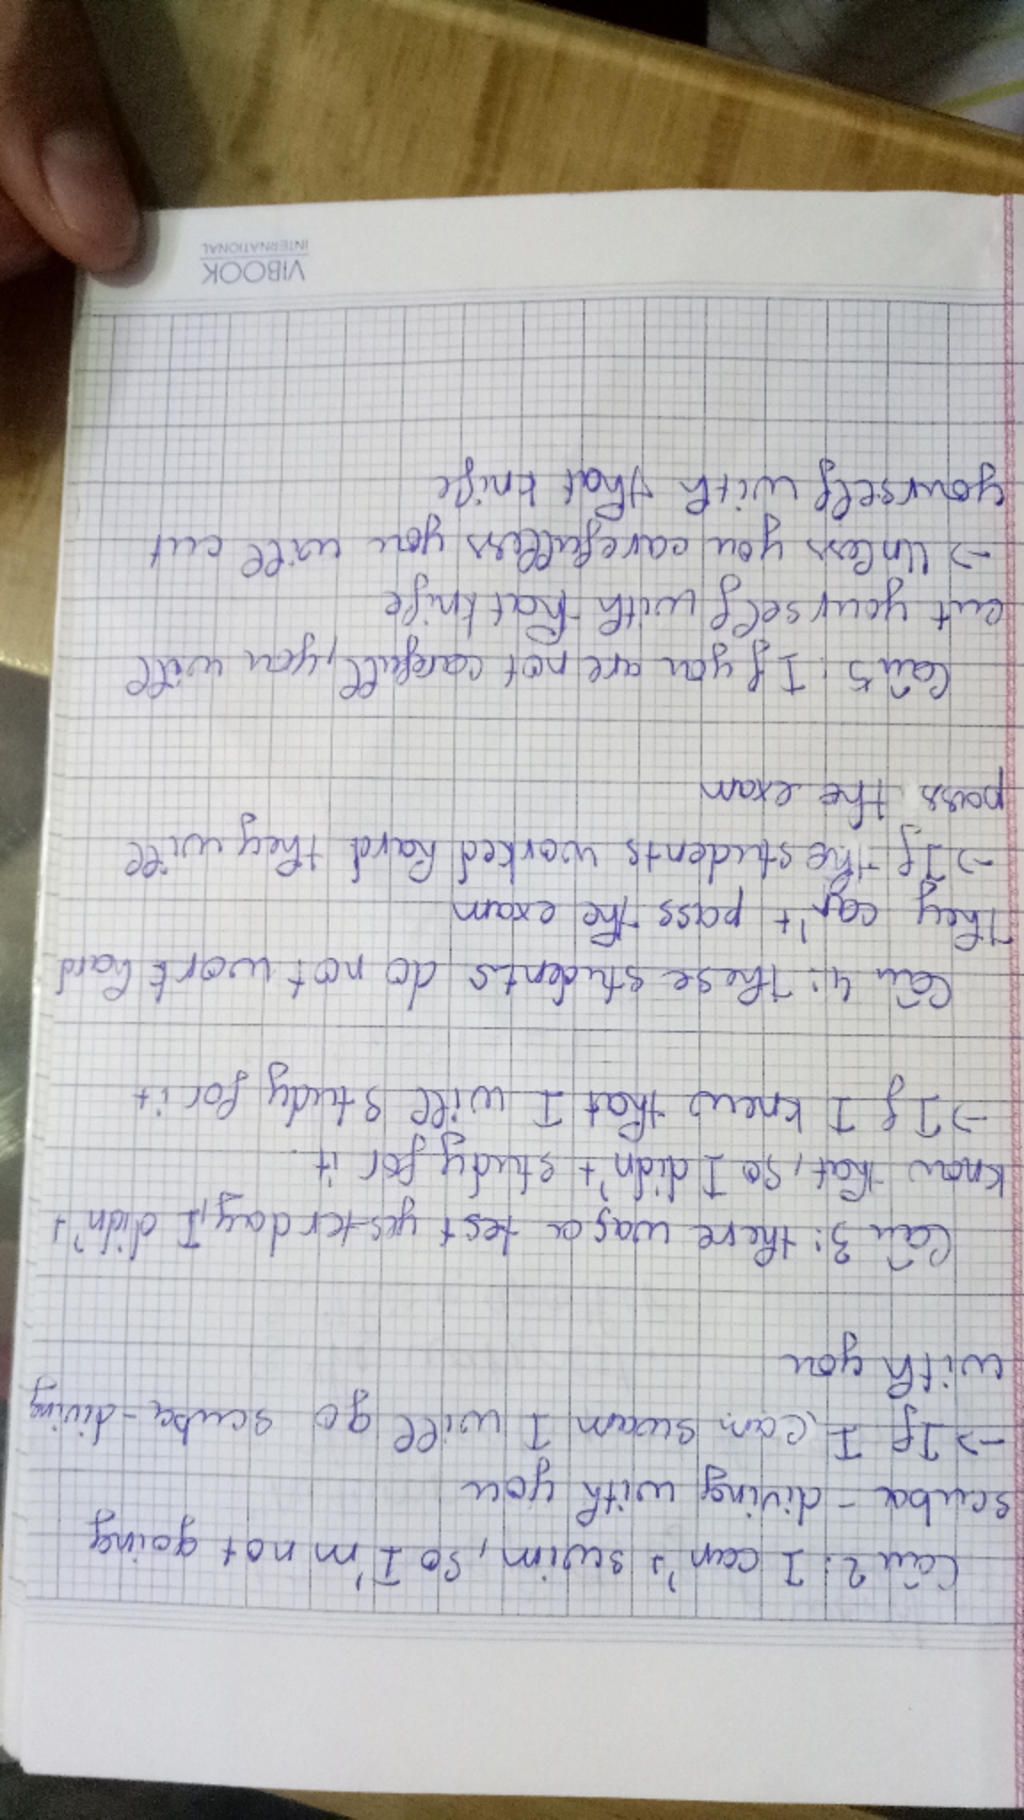 Câu 2: I can't swim, so I'm not going
scuba-diving with you
→ If I can swam I will go scuba-diving
with you
Câu 3: there was a test yesterday, I didn't
know that, so I didn't study for it
→ If I knew that I will study for it
Câu 4: These students do not work hard
They can't pass the exam
→ If the students worked hard they will
pass the exam
Câu 5: If you are not carefull, you will
cut yourself with that knife
→ Unless you carefulless you will cut
yourself with that knife
VIBOOK
INTERNATIONAL